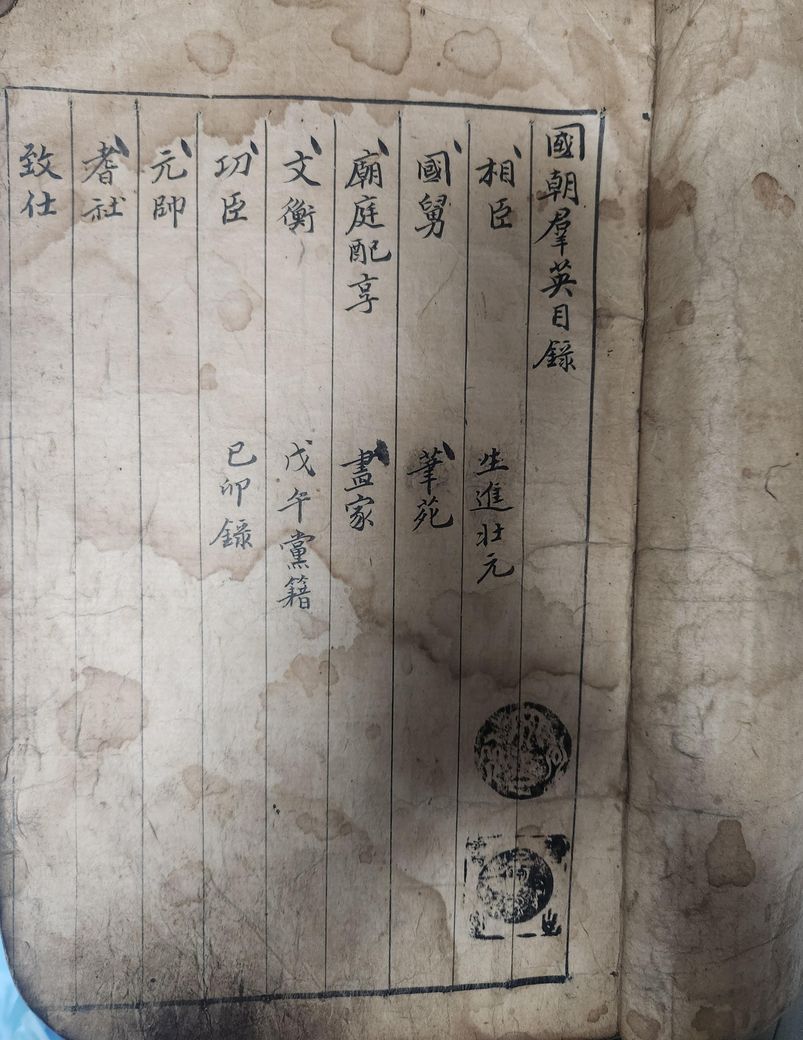 國朝羣英目錄
相臣 生進壯元
國舅 筆苑
廟庭配享 畫家
文衡 戊午黨籍
功臣 己卯錄
元帥
耆社
致仕